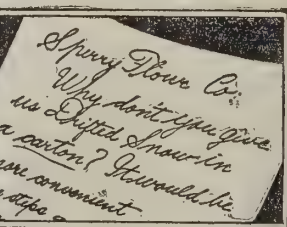 Sperry Flour Co:
Why don't you give
us Drifted Snow in
a carton? It would be
more convenient
steps